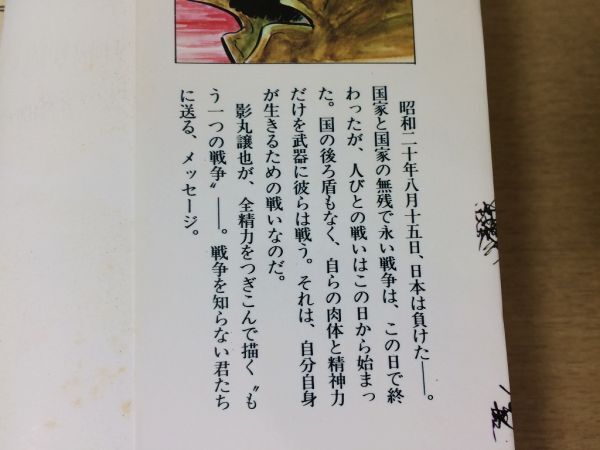 昭和二十年八月十五日、日本は負けた――。
国家と国家の無残で永い戦争は、この日で終
わったが、人びとの戦いはこの日から始まっ
た。国の後ろ盾もなく、自らの肉体と精神力
だけを武器に彼らは戦う。それは、自分自身
が生きるための戦いなのだ。
影丸譲也が、全精力をつぎこんで描く〝も
う一つの戦争〟――。戦争を知らない君たち
に送る、メッセージ。